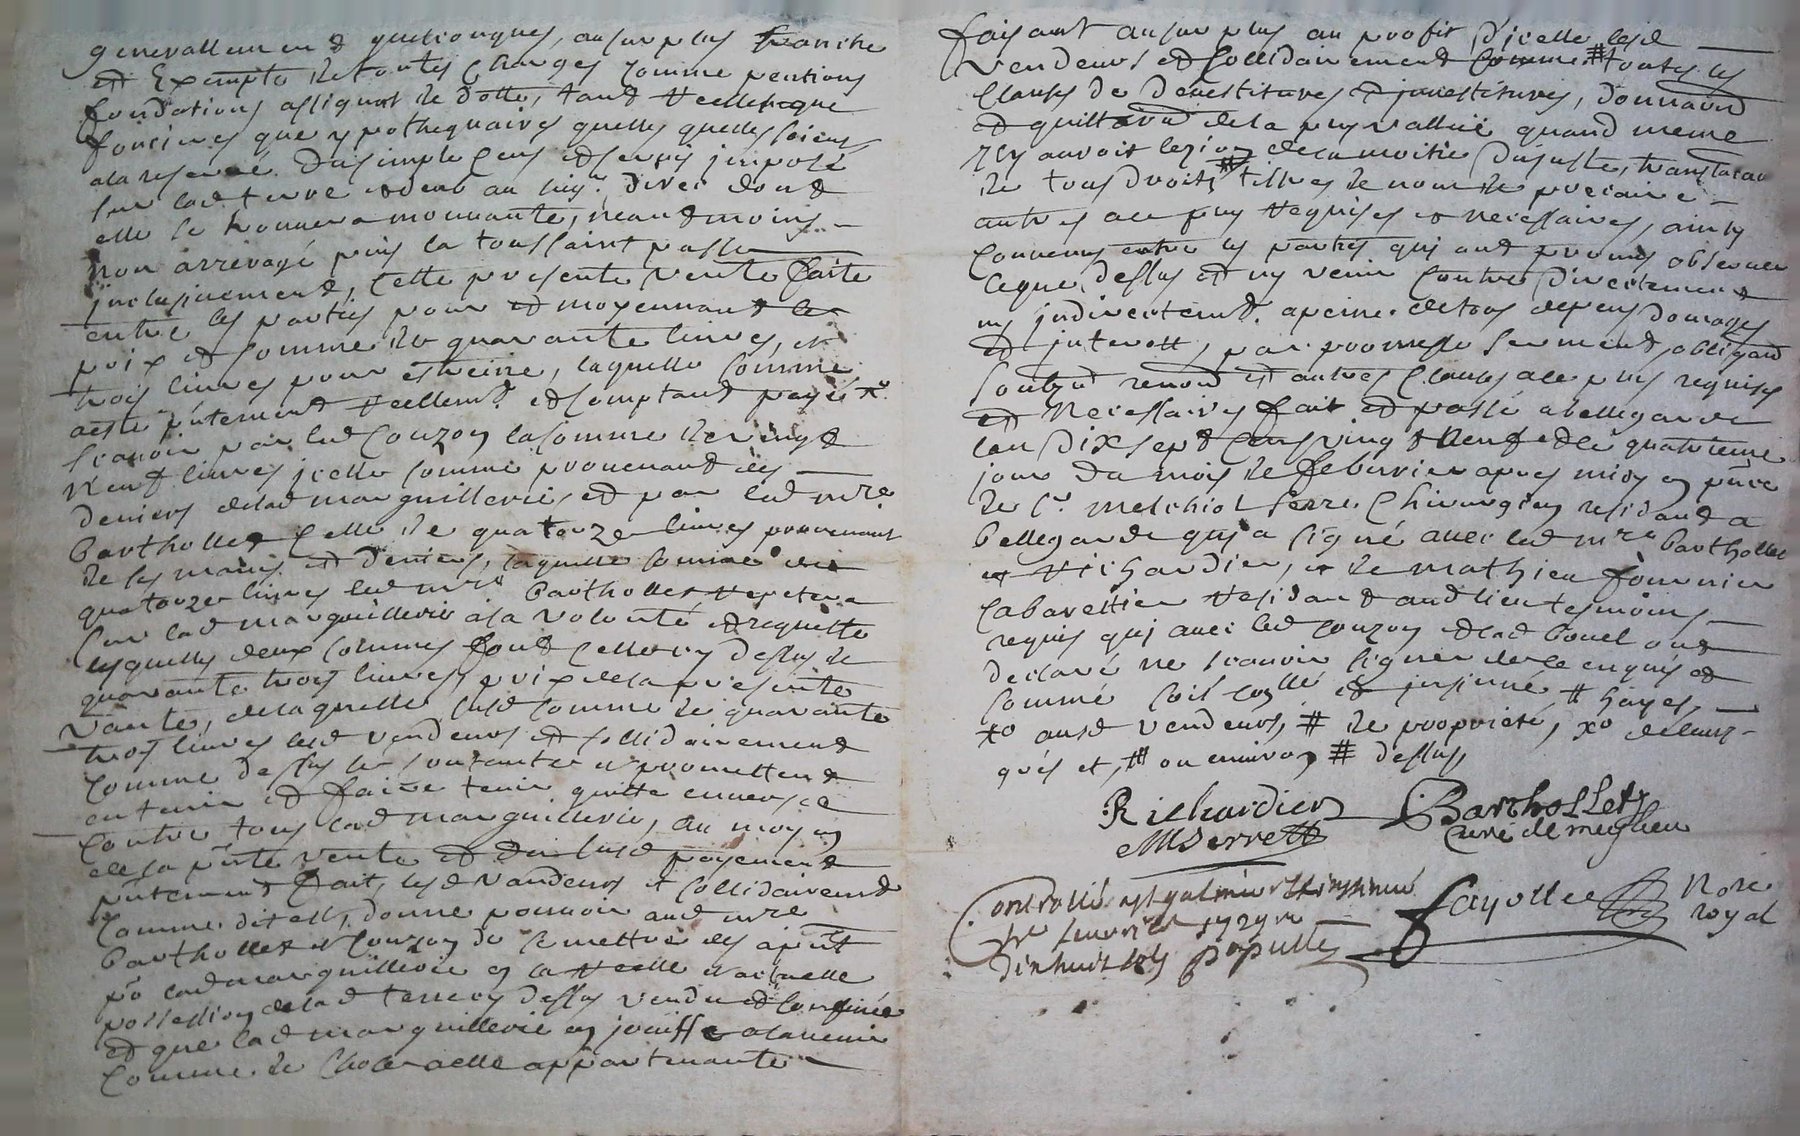 generallement quelconques, au surplus franche
et Exempte de toutes charges comme pentions
fondations assignat de dotte, tant reellesque
foncires que ypothequaires quelles quelles soient
a la reserve du simple cens et servis imposé
sur lad terre deub au seigr. divec dont
elle se trouvera mouvante, neantmoins
non arreragé puis la toussaint passé
inclusivement, Cette presente vente faite
entre les parties pour et moyennant le
prix et somme de quarante livres, et
trois livres pour estreine, laquelle somme
a esté pntement reellemt. et comptant payéé xo.
scavoir par led Couzon la somme de vingt
neuf livres icelle somme provenant des
deniers de lad marguillerie, et par led mre
Barthollet Celle de quatorze livres provenant
de ses mains et deniers, laquelle somme de
quatorze livres led mre Barthollet repetera
sur lad marguillerie a sa volonté et requette
lesquelles deux sommes font celle cy dessus de
quarante trois livres, prix de la presente
vante, de laquelle susd somme de quarante
trois livres lesd vendeurs et sollidairement
comme dessus se contantent et promettent
en tenir et faire tenir quitte envers et
contre tous lad marguillerie, au moyen
de la pnte vente et du susd payement
pntement fait, lesd vandeurs et sollidairemt
comme dit est, donne pouvoir aud mre
Barthollet et Couzon de se mettre des apnt
po lad marguillerie en la reelle et actuelle
possession de lad terre cy dessus vendu et confinée
et que lad marguillerie en jouisse a lavenir
comme de chose a elle appartenante
faisant au surplus au proffit d'icelle lesd
vendeurs et sollidairement comme # toutes les
clauses de devestitures et investitures, donnant
et quittant de la plus vallue quand meme
il y auroit lezion de la moitie du juste, translation
de tous droits # tiltres de nom de precaire
autres au plus requises et necessaires, ainsy
convenus entre les parties qui ont promis observer
ce que dessus et ny venir contre directement
ny indirectemt. a peine de tous depens domages
et interets, par promesse serment, obligaon
soubz renon et autres clauses au plus requises
et necessaires fait et passé a bellegarde
lan dix sept cens vingt neuf et le quatrieme
jour du mois de febvrier apres midy en pnce
de sr. melchiol serre Chirurgien residant a
bellegarde qui a signé avec led mre Barthollet
et richardier, et de mathieu fournier
cabarettier residant aud lieu tesmoins
requis qui avec led couzon et lad bouel ont
declaré ne scavoir signer de ce enquis et
sommé soit conllé et insinué # hayes,
xo ausd vendeurs, # de proprieté, xo
et, # ou environ # dessus,
Richardier Barthollet
MSerrett curé de meylieu
Controllé et insinué
Fayolle Nore
royal
1729
dixhuit sols